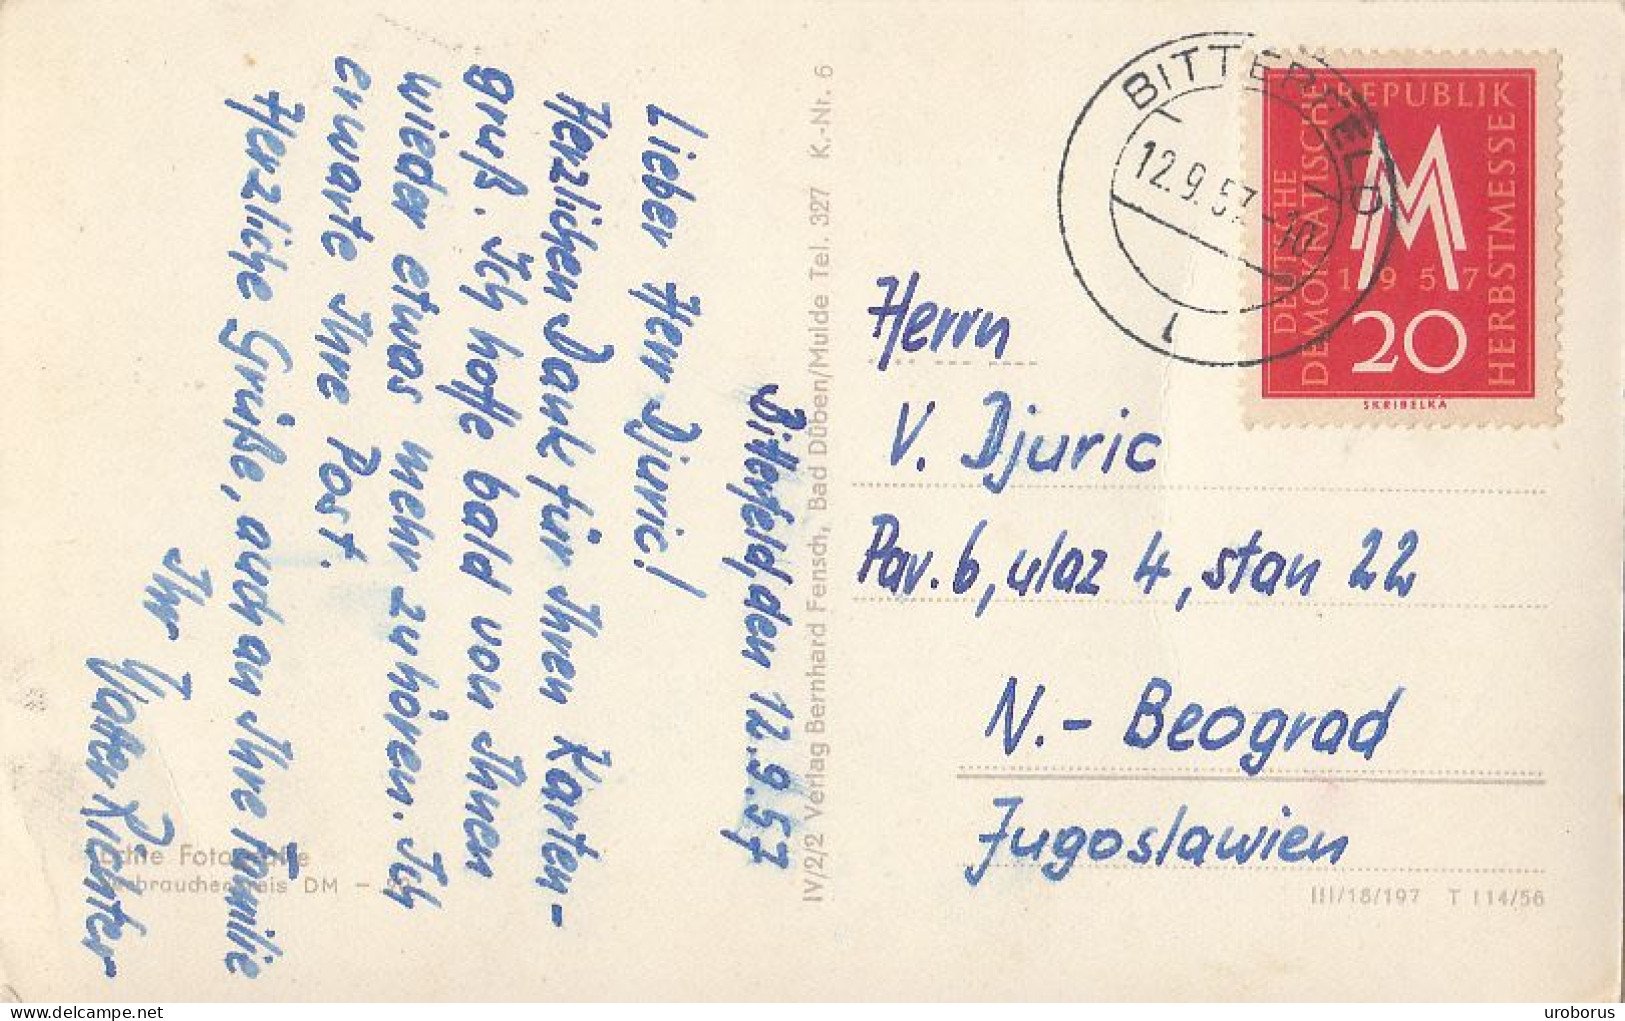 Bitterfeld, den 12.9.57
Lieber Herr Djuric!
Herzlichen Dank für Ihren Karten-
gruß. Ich hoffe bald von Ihnen
wieder etwas mehr zu hören. Ich
erwarte Ihre Post.
Herzliche Grüße, auch an Ihre Familie
Ihr Walter Richter
Echte Fotografie
Verbraucherpreis DM -
IV/2/2 Verlag Bernhard Fensch, Bad Düben/Mulde Tel. 327 K.-Nr. 6
BITTERFELD
12.9.57.-10
1
DEUTSCHE
DEMOKRATISCHE
REPUBLIK
HERBSTMESSE
MM
1957
20
SKRIBELKA
Herrn
V. Djuric
Pav. 6, ulaz 4, stan 22
N.- Beograd
Jugoslawien
III/18/197 T 114/56
delcampe.net
uroborus